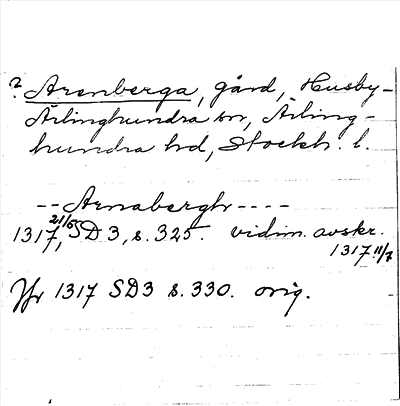 ? Arenberga, gård, Husby-
Ärlinghundra sn, Ärling-
hundra hd, Stockh. l.
-- Arnabergh ----
1317 21/6, SD 3, s. 325. vidim. avskr.
1317 11/7
Jfr 1317 SD3 s. 330. orig.